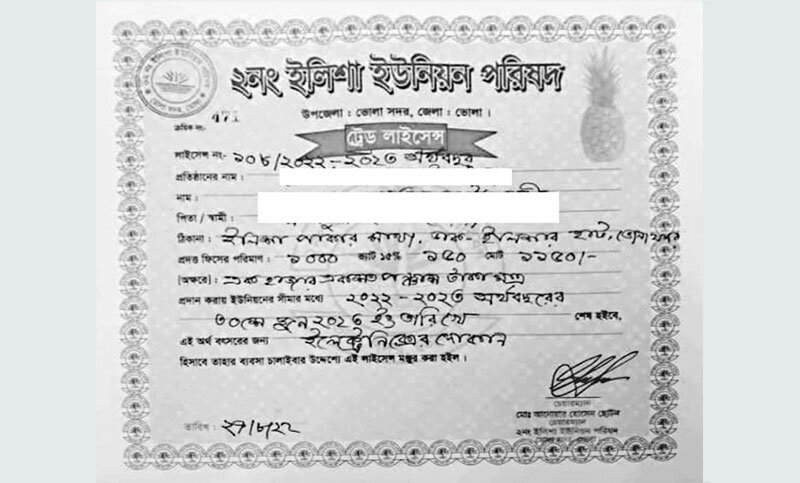 ২নং ইলিশা ইউনিয়ন পরিষদ
উপজেলা : ভোলা সদর, জেলা : ভোলা ।
ক্রমিক নং- 471
ট্রেড লাইসেন্স
লাইসেন্স নং- ১০৮/২০২২-২০২৩ অর্থবছর
প্রতিষ্ঠানের নাম :
নাম :
পিতা / স্বামী :
ঠিকানা : ইলিশা বাজার মাথা, ডাক- ইলিশার হাট, ভোলা সদর
প্রদত্ত ফিসের পরিমাণ : ১০০০ ভ্যাট ১৫% ১৫০ মোট ১১৫০/-
(অক্ষরে) : এক হাজার একশত পঞ্চাশ টাকা মাত্র
প্রদান করায় ইউনিয়নের সীমার মধ্যে ২০২২-২০২৩ অর্থবছরের
৩০শে জুন ২০২৩ ইং তারিখে শেষ হইবে,
এই অর্থ বৎসরের জন্য ইলেকট্রনিক্সের দোকান
হিসাবে তাহার ব্যবসা চালাইবার উদ্দেশ্যে এই লাইসেন্স মঞ্জুর করা হইল ।
চেয়ারম্যান
তারিখ : ২৭/৮/২২
মোঃ আনোয়ার হোসেন ছোটন
চেয়ারম্যান
২নং ইলিশা ইউনিয়ন পরিষদ